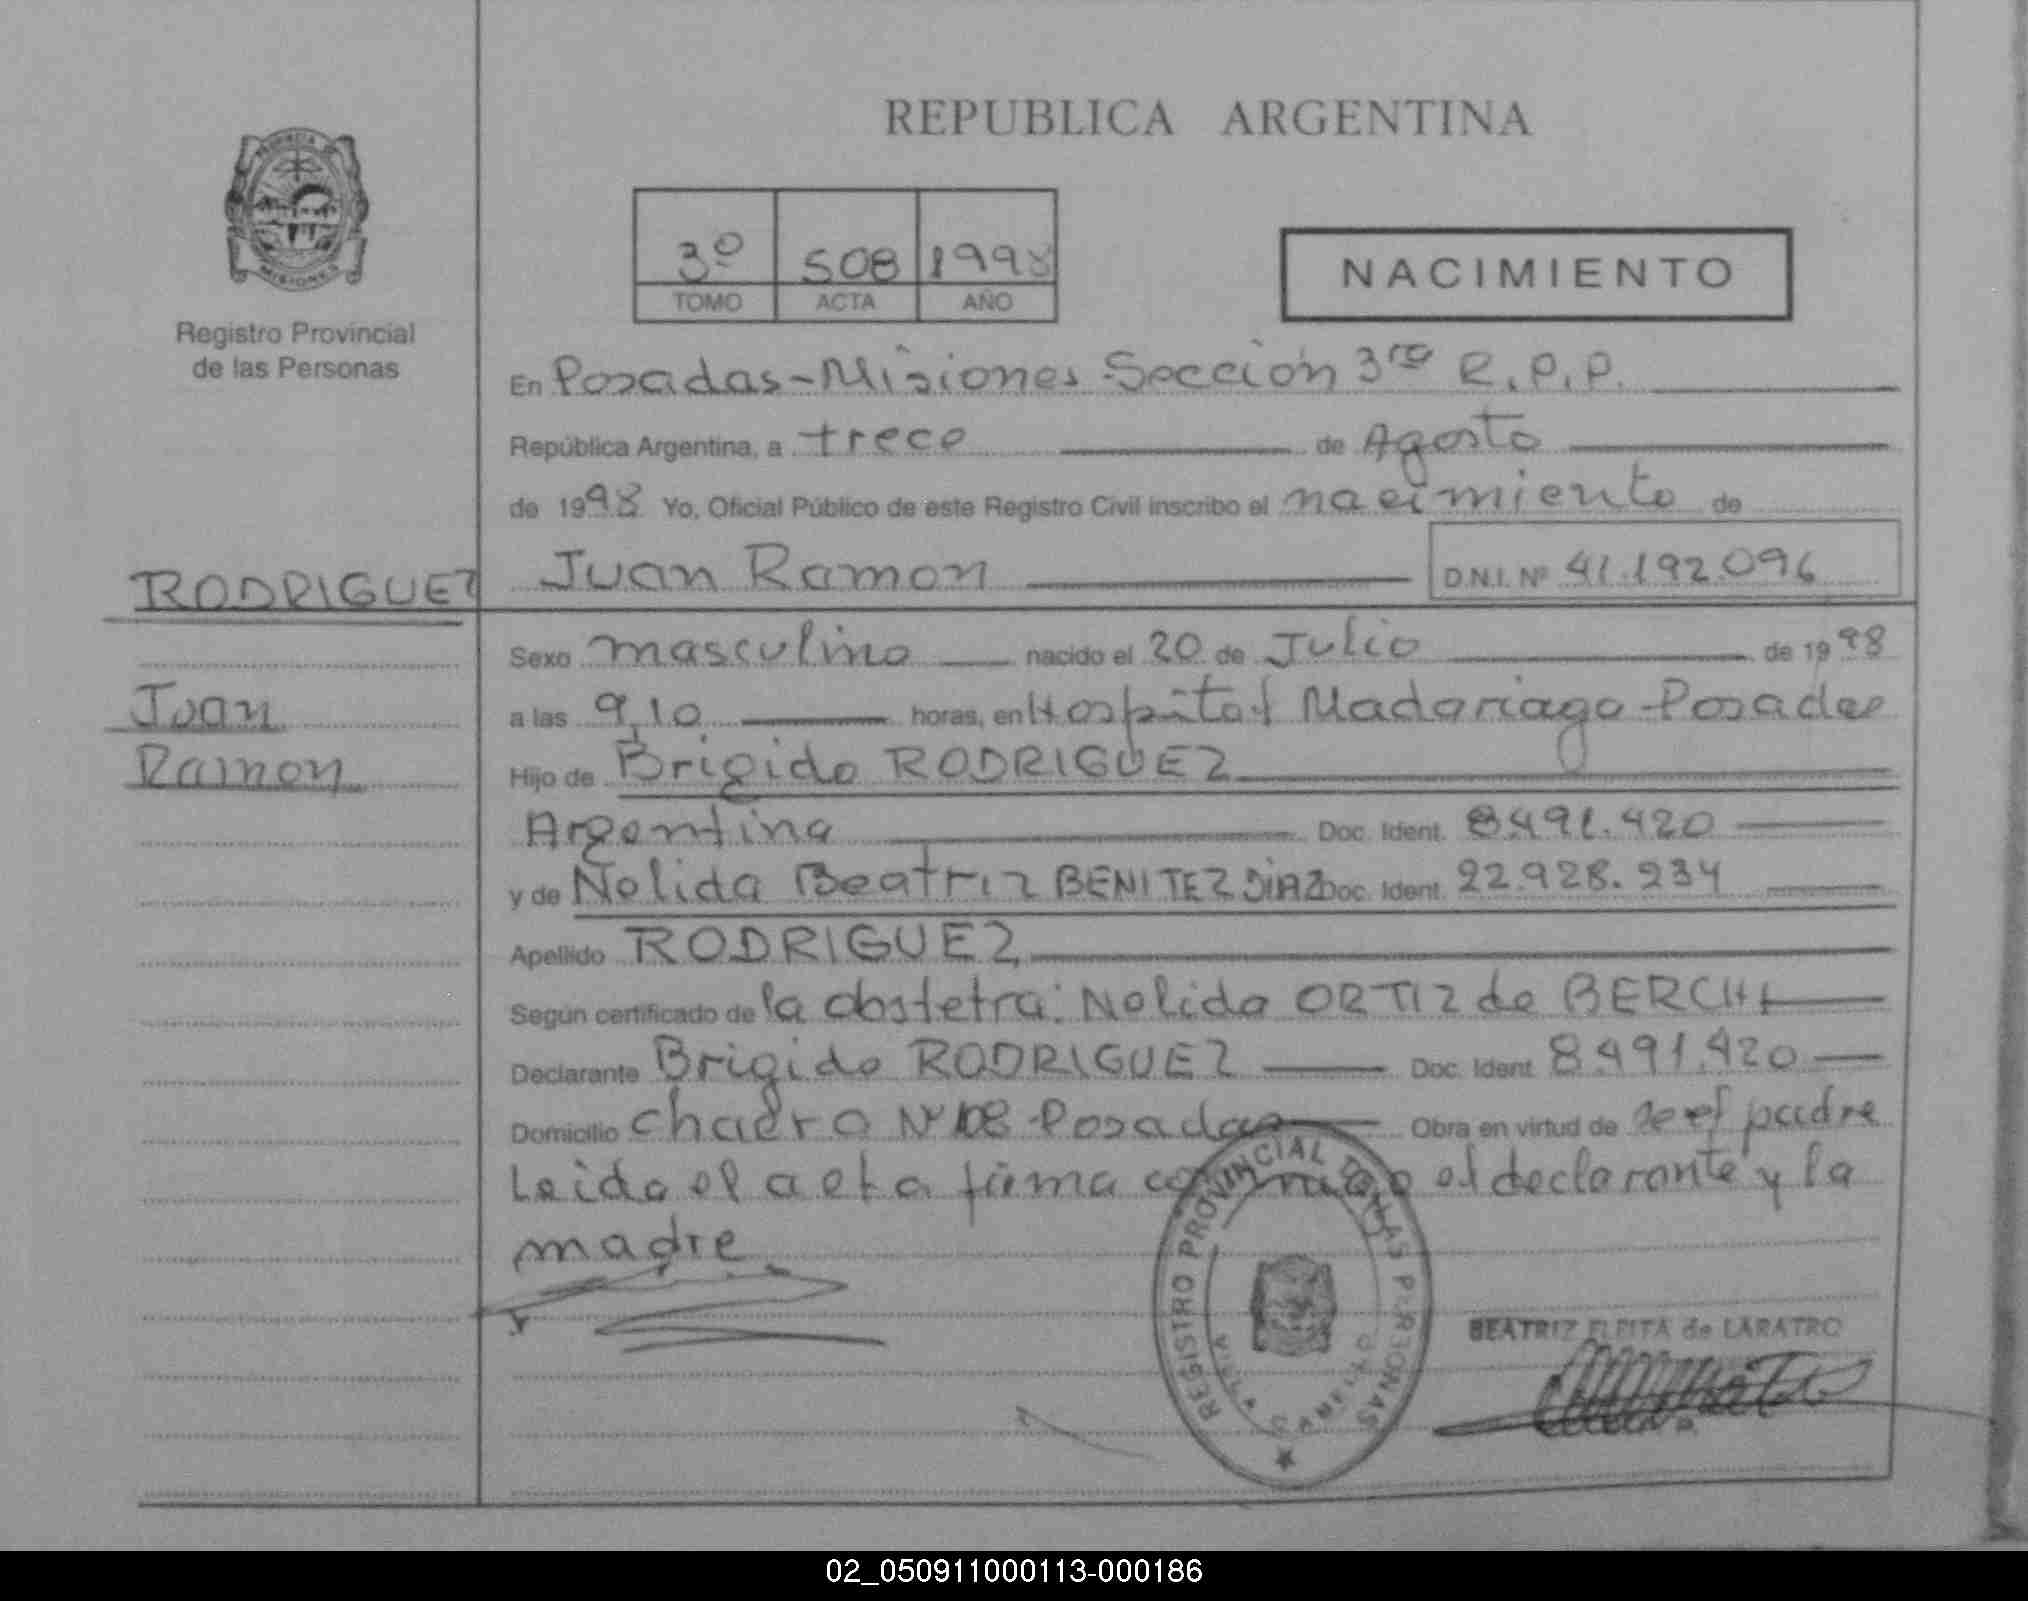 REPUBLICA ARGENTINA
PROVINCIA DE
MISIONES
Registro Provincial
de las Personas
3º 508 1998
TOMO ACTA AÑO
NACIMIENTO
En Posadas-Misiones Sección 3ra R.P.P.
República Argentina, a trece de Agosto
de 1998 Yo, Oficial Público de este Registro Civil inscribo el nacimiento de
RODRIGUEZ
Juan Ramon D.N.I. Nº 41.192.096
Sexo masculino nacido el 20 de Julio de 1998
Juan
a las 9,10 horas, en Hospital Madariaga-Posadas
Ramon
Hijo de Brigido RODRIGUEZ
Argentina Doc. Ident. 8.491.420
y de Nelida Beatriz BENITEZ DIAZ Doc. Ident. 22.928.234
Apellido RODRIGUEZ
Según certificado de la obstetra: Nelida ORTIZ de BERCHI
Declarante Brigido RODRIGUEZ Doc. Ident. 8.491.420
Domicilio chacra Nº 108 Posadas Obra en virtud de se el padre
Leido el acta firma conmigo el declarante y la
madre
REGISTRO PROVINCIAL DE LAS PERSONAS
VILLA CABELLO
BEATRIZ FLEITA de LARATRO
02_050911000113-000186